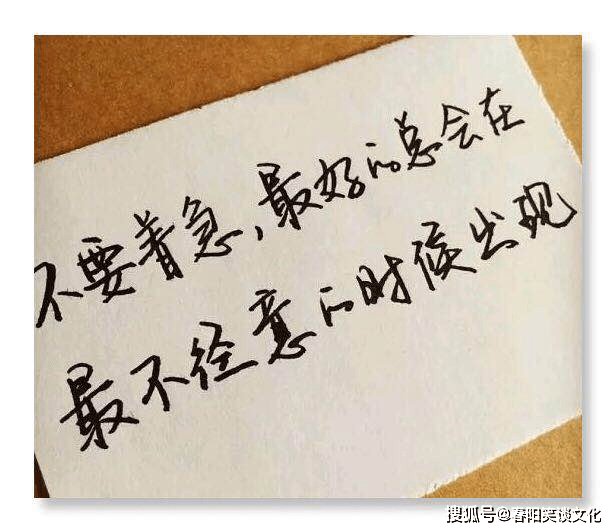 不要着急,最好的总会在
最不经意的时候出现
搜狐号@春阳笑谈文化